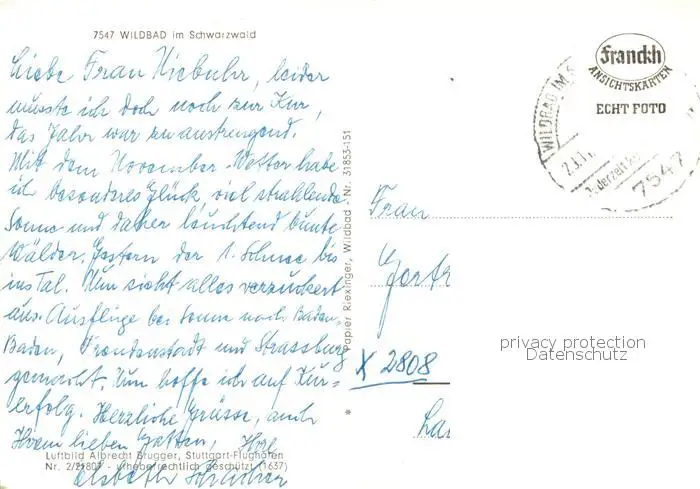 7547 WILDBAD im Schwarzwald
Liebe Frau Niebuhr, leider
musste ich doch noch zur Kur,
das Jahr war zu anstrengend.
Mit dem November-Wetter habe
ich besonderes Glück, viel strahlende
Sonne und daher leuchtend bunte
Wälder. Gestern der 1. Schnee bis
ins Tal. Nun sieht alles verzuckert
aus. Ausflüge bei Sonne nach Baden-
Baden, Freudenstadt und Strassburg
gemacht. Nun hoffe ich auf Kur-
erfolg. Herzliche Grüsse, auch
Ihrem lieben Gatten, Ihre
Elsbeth
Luftbild Albrecht Brugger, Stuttgart-Flughafen
Nr. 2/21807 - urheberrechtlich geschützt (1637)
Papier Riexinger, Wildbad - Nr. 31853-151
Franckh
ANSICHTSKARTEN
ECHT FOTO
WILDBAD IM S
7547
Frau
X 2808
privacy protection
Datenschutz